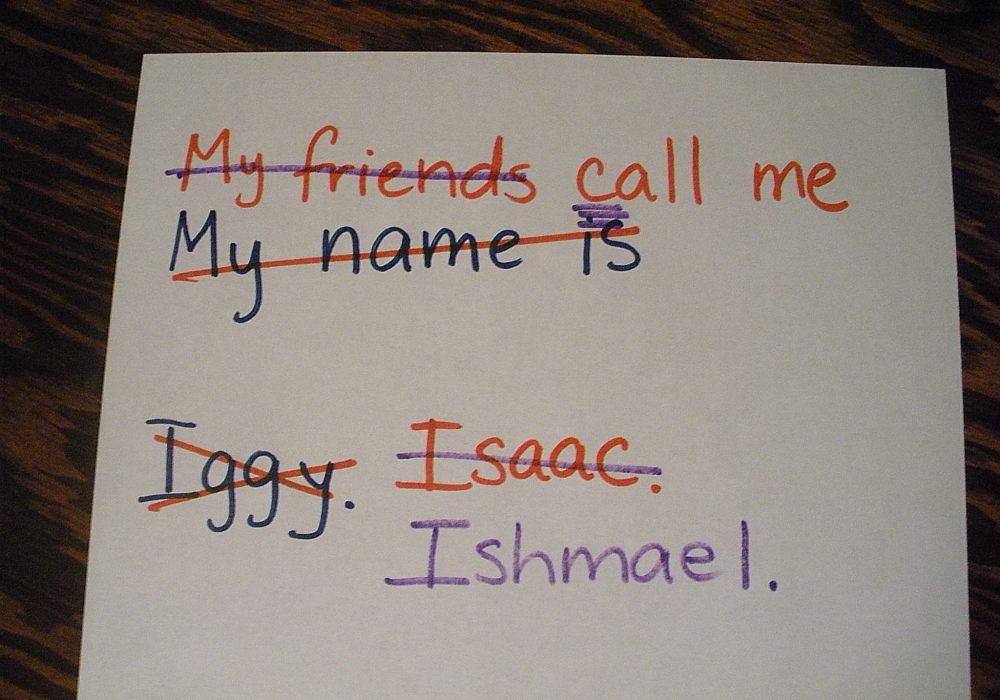 My friends call me
My name is
Iggy. Isaac.
Ishmael.